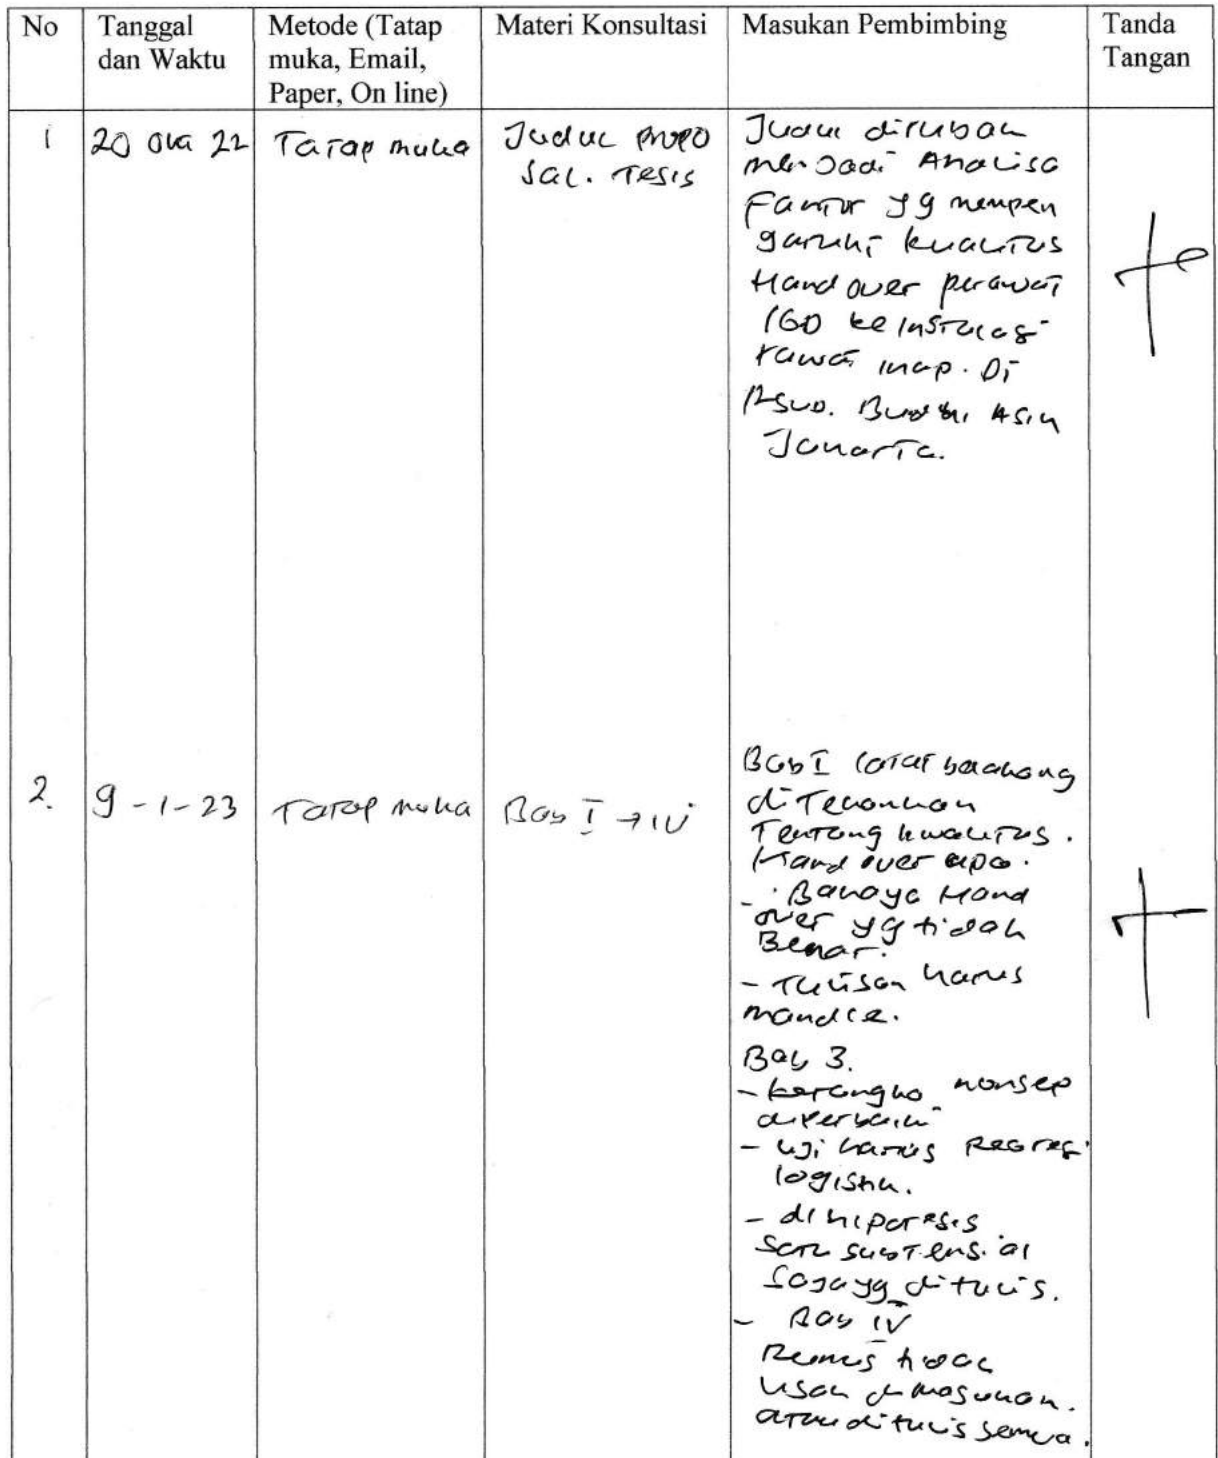 No
Tanggal
dan Waktu
Metode (Tatap
muka, Email,
Paper, On line)
Materi Konsultasi
Masukan Pembimbing
Tanda
Tangan
1
20 Okt 22
Tatap muka
Judul propo
sal. Tesis
Judul dirubah
menjadi Analisa
Faktor yg mempen
garuhi kualitas
Hand over perawat
IGD ke instalasi
rawat inap. Di
RSUD. Budhi Asih
Jakarta.
2.
9-1-23
Tatap muka
Bab I → IV
Bab I latar belakang
di Tekankan
Tentang kwalitas.
Hand over apa.
- Bahaya Hand
over yg tidak
Benar.
- Tulisan harus
Bab 3.
- kerangka konsep
diperbaiki
- uji harus Regresi
logistik.
- di hipotesis
satu substensial
saja yg ditulis.
- Bab IV
Rumus tidak
usah dimasukan.
atau ditulis semua.